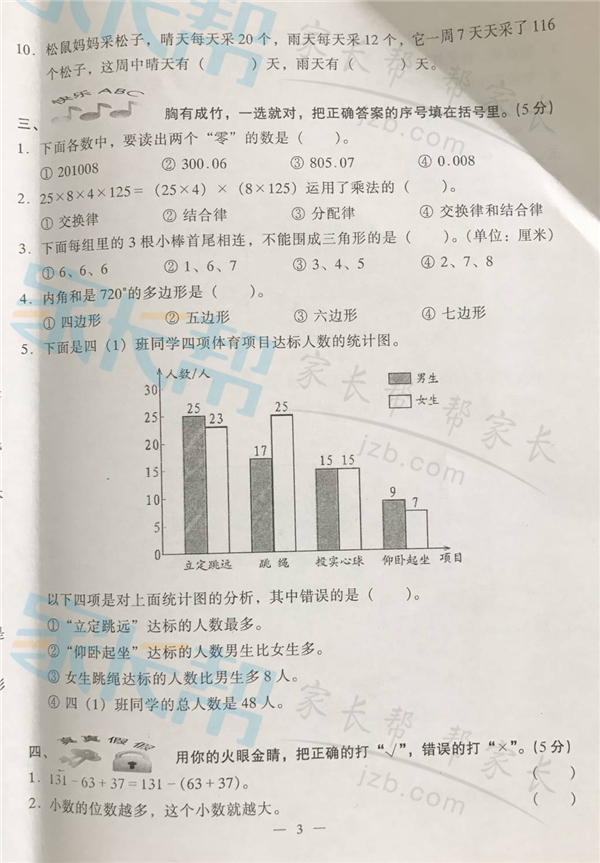 10. 松鼠妈妈采松子，晴天每天采20个，雨天每天采12个，它一周7天天采了116
个松子，这周中晴天有（　　）天，雨天有（　　）天。
快乐ABC
三、 胸有成竹，一选就对，把正确答案的序号填在括号里。(5分)
1. 下面各数中，要读出两个“零”的数是（　　）。
① 201008 ② 300.06 ③ 805.07 ④ 0.008
2. 25×8×4×125＝（25×4）×（8×125）运用了乘法的（　　）。
① 交换律 ② 结合律 ③ 分配律 ④ 交换律和结合律
3. 下面每组里的3根小棒首尾相连，不能围成三角形的是（　　）。(单位：厘米)
① 6、6、6 ② 1、6、7 ③ 3、4、5 ④ 2、7、8
4. 内角和是720°的多边形是（　　）。
① 四边形 ② 五边形 ③ 六边形 ④ 七边形
5. 下面是四（1）班同学四项体育项目达标人数的统计图。
人数/人
男生
女生
30
25
20
15
10
5
0
25 23 17 25 15 15 9 7
立定跳远 跳绳 投实心球 仰卧起坐 项目
以下四项是对上面统计图的分析，其中错误的是（　　）。
①“立定跳远”达标的人数最多。
②“仰卧起坐”达标的人数男生比女生多。
③ 女生跳绳达标的人数比男生多8人。
④ 四（1）班同学的总人数是48人。
真真假假
四、 用你的火眼金睛，把正确的打“√”，错误的打“×”。(5分)
1. 131－63＋37＝131－(63＋37)。 （　　）
2. 小数的位数越多，这个小数就越大。 （　　）
— 3 —
家长帮
jzb.com
家长帮 家长帮 家长
jzb.com
家长帮
家长帮 帮家长
jzb.com